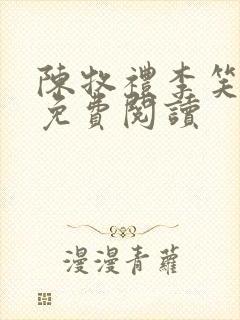 陳牧禮李笑
免費閱讀
漫漫青蘿